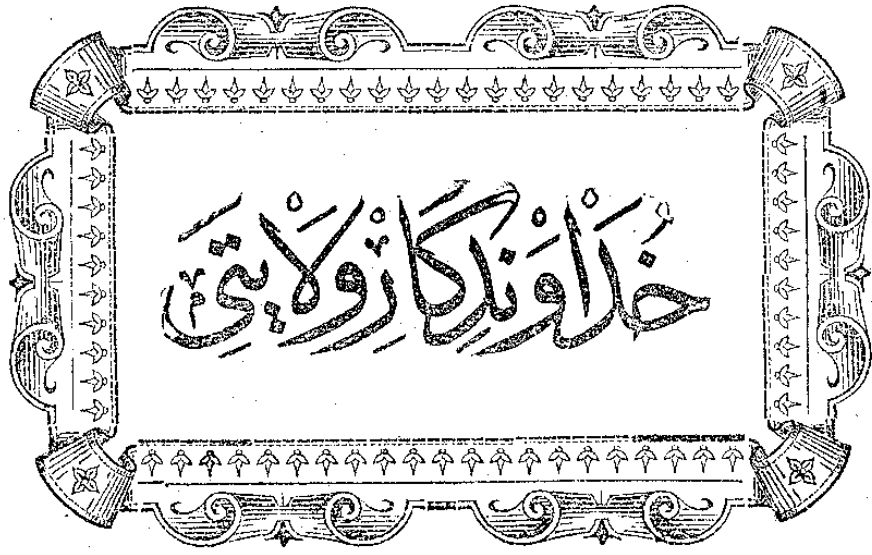 خداوندگار ولایتی